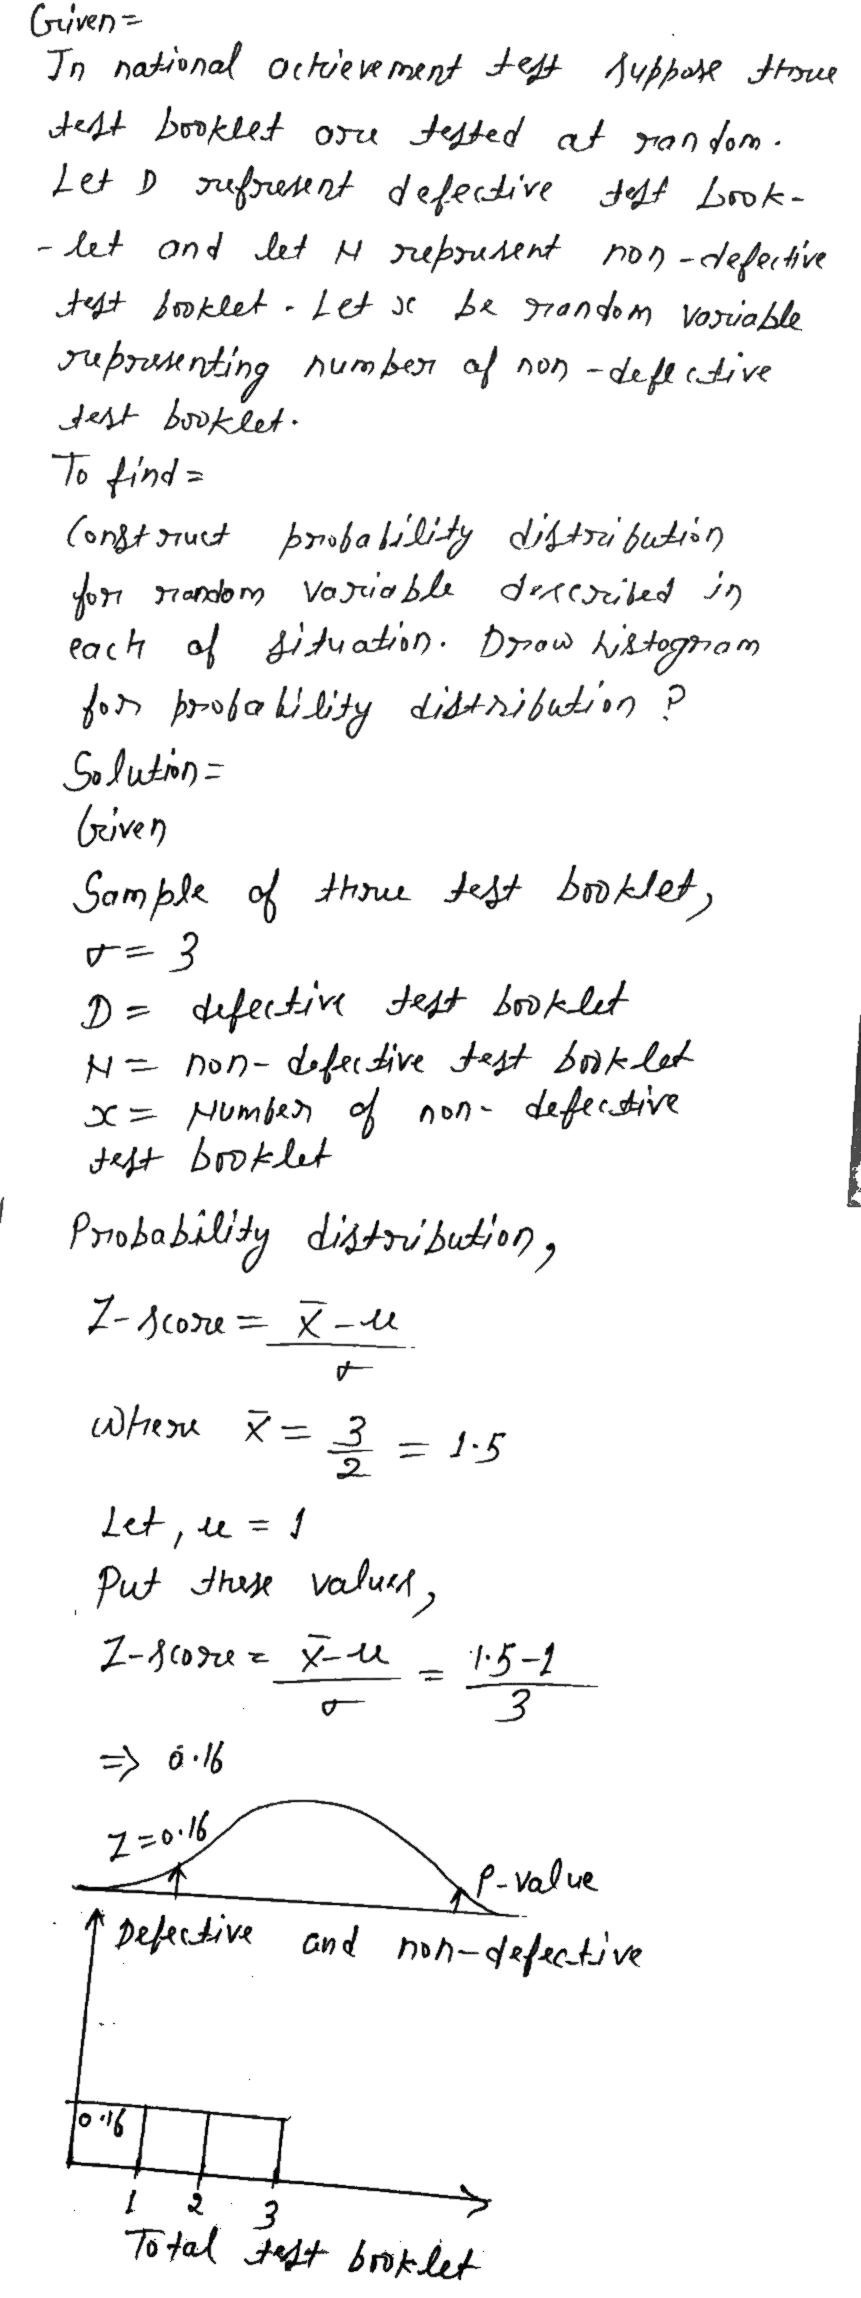 Given =
In national achievement test suppose three
test booklet are tested at random.
Let D represent defective test book-
-let and let N represent non-defective
test booklet. Let x be random variable
representing number of non-defective
test booklet.
To find =
Construct probability distribution
for random variable described in
each of situation. Draw histogram
for probability distribution?
Solution =
Given
Sample of three test booklet,
σ = 3
D = defective test booklet
N = non-defective test booklet
x = Number of non-defective
test booklet
Probability distribution,
Z-score = x̄ - u / σ
Where x̄ = 3/2 = 1.5
Let, u = 1
Put these values,
Z-score = x̄ - u / σ = 1.5-1 / 3
⇒ 0.16
Z = 0.16
P-value
Defective and non-defective
0.16
1 2 3
Total test booklet